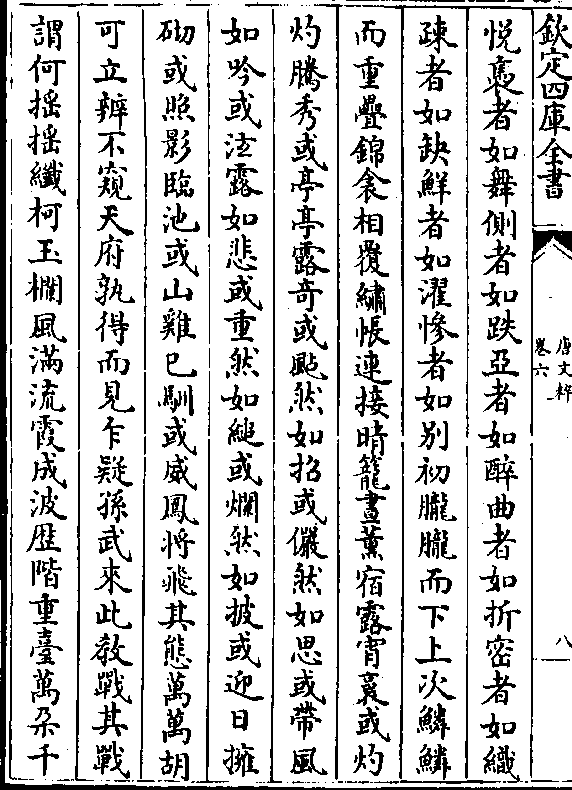 欽定四庫全書
唐文粹
卷六
八
悦裛者如舞側者如跌亞者如醉曲者如折密者如織
疎者如缺鮮者如濯慘者如别初朧朧而下上次鱗鱗
而重疊錦衾相覆繡帳連接晴籠晝薰宿露宵裛或灼
灼騰秀或亭亭露奇或颭然如招或儼然如思或帶風
如吟或泫露如悲或重然如縋或爛然如披或迎日擁
砌或照影臨池或山雞已馴或威鳳將飛其態萬萬胡
可立辨不窺天府孰得而見乍疑孫武來此教戰其戰
謂何摇摇纖柯玉欄風滿流霞成波歴階重臺萬朵千